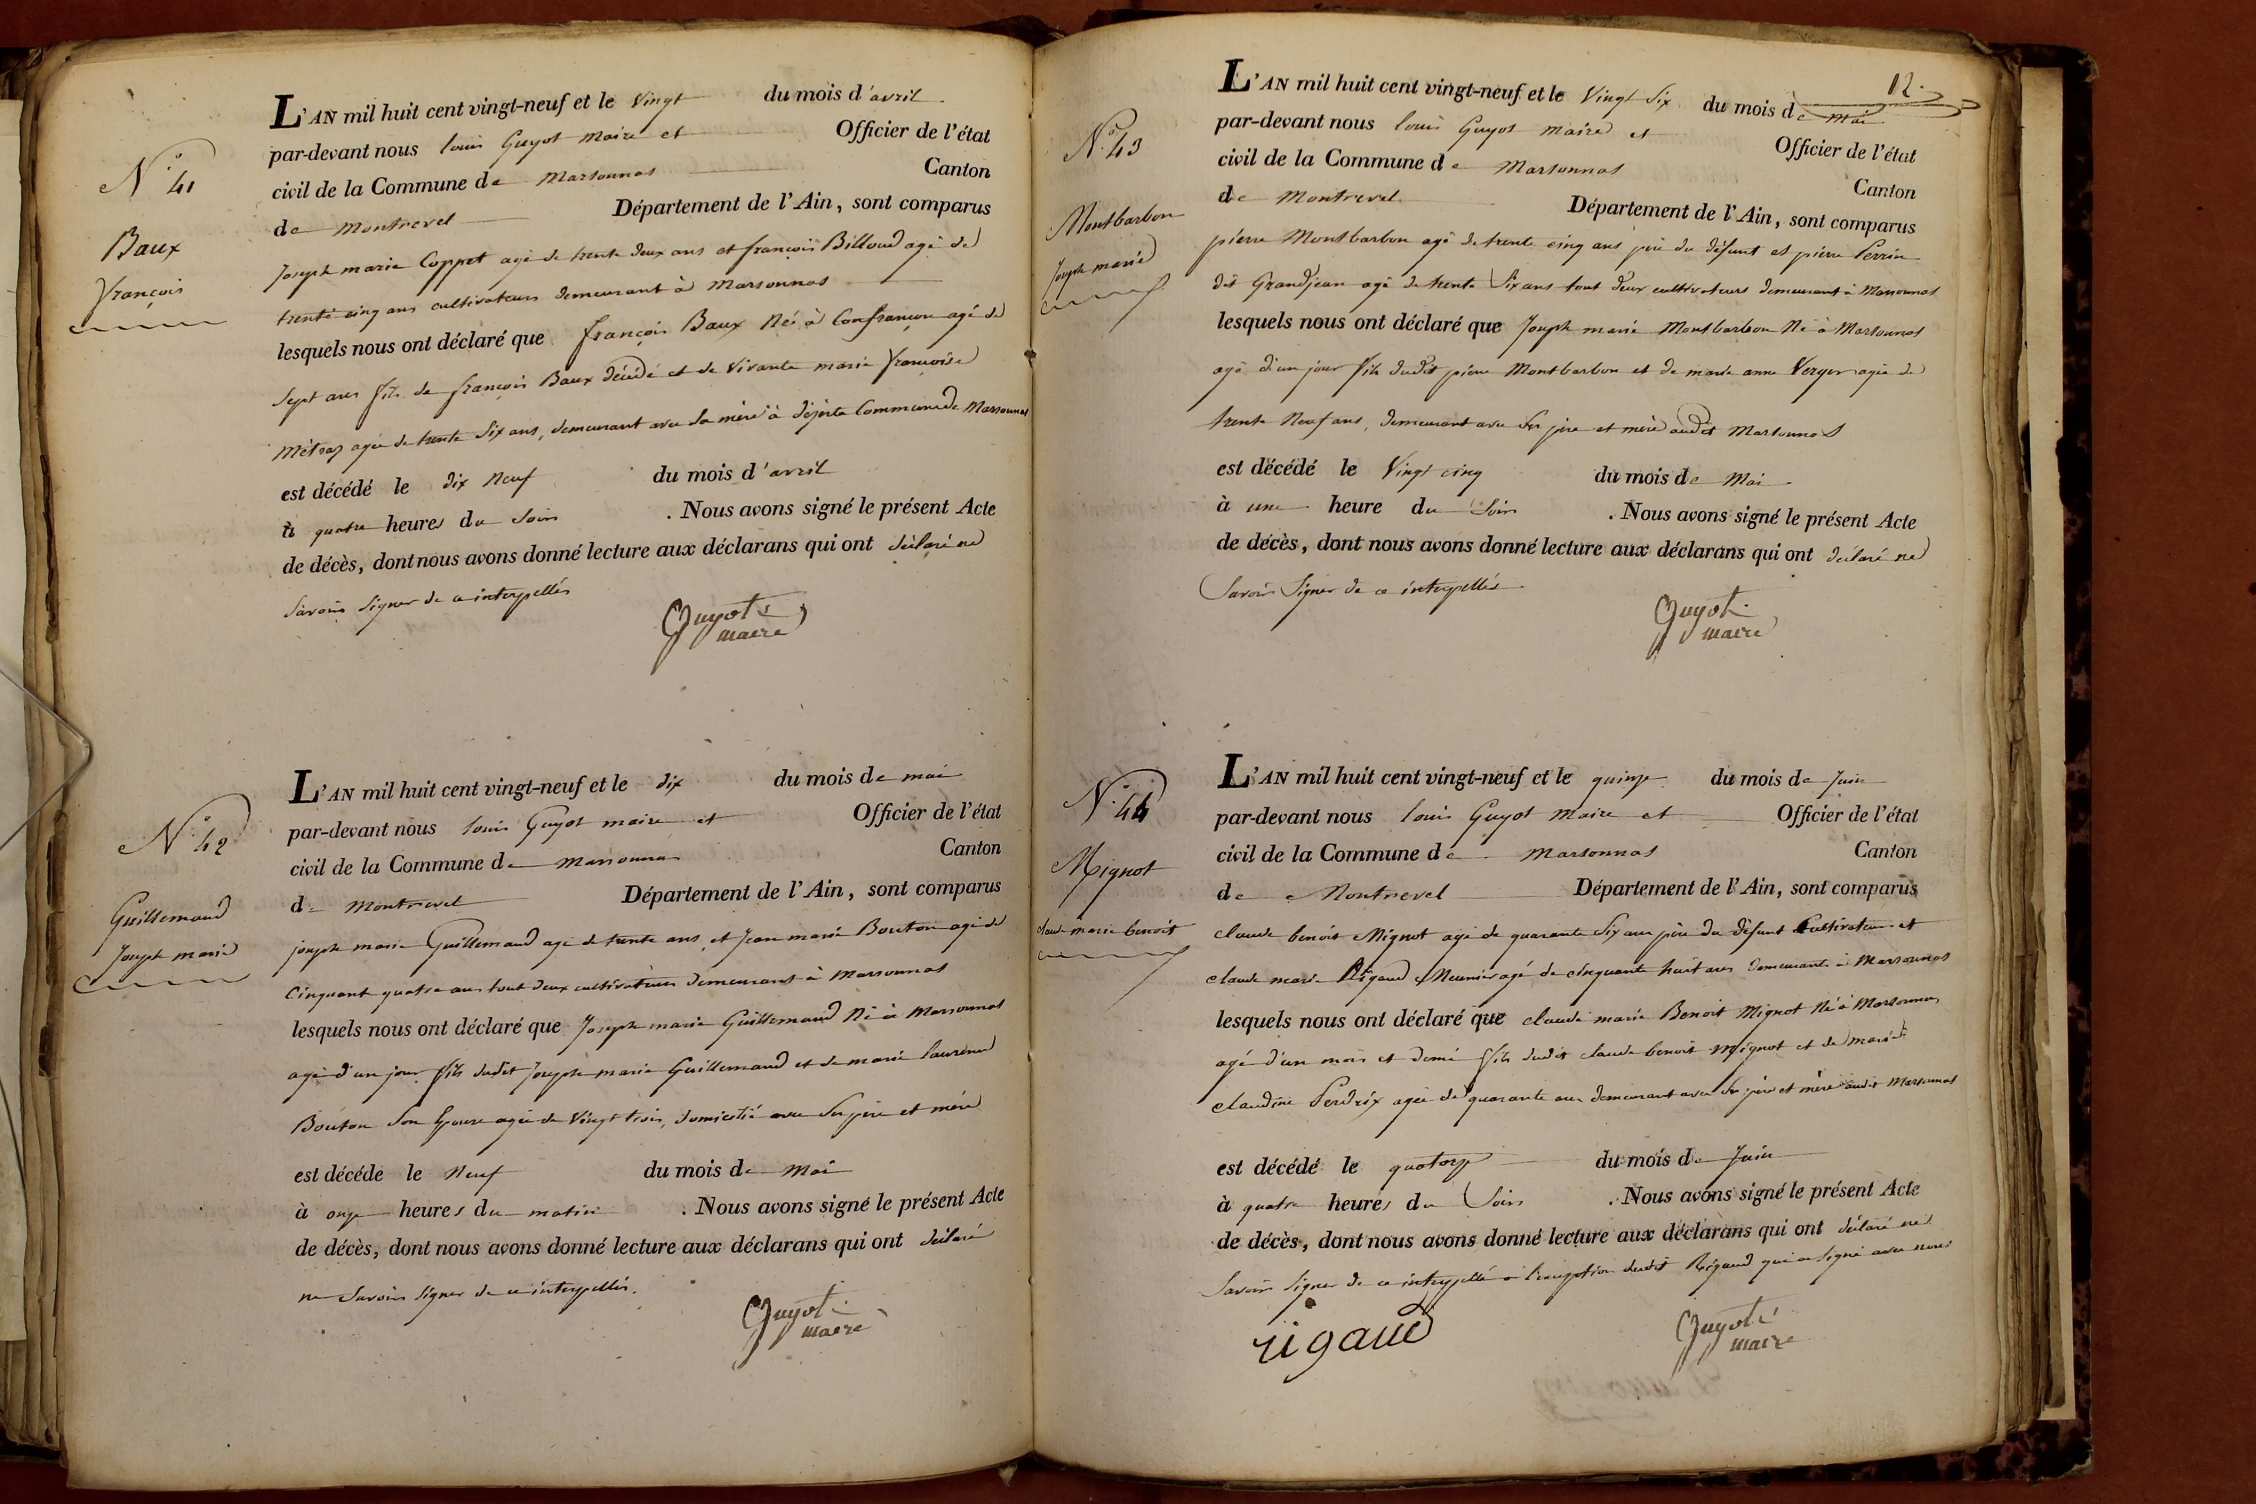 N.° 41
Baux
françois
L'AN mil huit cent vingt-neuf et le vingt du mois d'avril
par-devant nous louis Guyot maire et Officier de l'état
civil de la Commune de Marsonnas Canton
de Montrevel Département de l'Ain, sont comparus
Joseph marie Coppet agé de trente deux ans et françois Billoud agé de
trente cinq ans cultivateurs demeurant à Marsonnas
lesquels nous ont déclaré que françois Baux Né à Confrançon agé de
sept ans fils de françois Baux décédé et de vivante marie françoise
Métraz agée de trente six ans, demeurant avec sa mère à Commune de Marsonnas
est décédé le dix Neuf du mois d'avril
à quatre heures du soir . Nous avons signé le présent Acte
de décès, dont nous avons donné lecture aux déclarans qui ont déclaré ne
savoir signer de ce interpellés
Guyot
maire
N.° 42
Guillemaud
Joseph marie
L'AN mil huit cent vingt-neuf et le dix du mois de mai
par-devant nous louis Guyot maire et Officier de l'état
civil de la Commune de Marsonnas Canton
de Montrevel Département de l'Ain, sont comparus
joseph marie Guillemaud agé de trente ans et Jean marie Bouton agé de
cinquant quatre ans tout deux cultivateurs demeurant à Marsonnas
lesquels nous ont déclaré que Joseph marie Guillemaud Né à Marsonnas
agé d'un jour fils dudit joseph marie Guillemaud et de marie laurence
Bouton son Epouse agée de vingt trois, domicilié avec ses père et mère
est décéde le Neuf du mois de Mai
à onze heures du matin . Nous avons signé le présent Acte
de décès, dont nous avons donné lecture aux déclarans qui ont déclaré
ne savoir signer de ce interpellés.
Guyot
maire
12.
N.° 43
Montbarbon
Joseph marie
L'AN mil huit cent vingt-neuf et le vingt six du mois de mai
par-devant nous louis Guyot maire et Officier de l'état
civil de la Commune de Marsonnas Canton
de Montrevel Département de l'Ain, sont comparus
pierre Montbarbon agé de trente cinq ans père du défunt et pierre Perrin
dit Grandjean agé de trente six ans tout deux cultivateurs demeurant à Marsonnas
lesquels nous ont déclaré que Joseph marie Montbarbon Né à Marsonnas
agé d'un jour fils dudit pierre Montbarbon et de marie anne Verger agée de
trente Neuf ans, demeurant avec ses père et mère audit Marsonnas
est décédé le vingt cinq du mois de Mai
à une heure du soir . Nous avons signé le présent Acte
de décès, dont nous avons donné lecture aux déclarans qui ont déclaré ne
savoir signer de ce interpellés
Guyot
maire
N.° 44
Mignot
claude marie benoit
L'AN mil huit cent vingt-neuf et le quinze du mois de Juin
par-devant nous louis Guyot Maire et Officier de l'état
civil de la Commune de Marsonnas Canton
de Montrevel Département de l'Ain, sont comparus
claude benoit Mignot agé de quarante six ans père du défunt Cultivateur et
claude marie Rigaud Meunier agé de cinquante huit ans demeurants à Marsonnas
lesquels nous ont déclaré que claude marie Benoit Mignot Né à Marsonnas
agé d'un mois et demi fils dudit claude benoit Mignot et de marie
claudine Perdrix agée de quarante ans demeurant avec ses père et mère audit Marsonnas
est décédé le quatorze du mois de Juin
à quatre heures du soir . Nous avons signé le présent Acte
de décès, dont nous avons donné lecture aux déclarans qui ont déclaré ne
savoir signer de ce interpellé à l'exception dudit Rigaud qui a signé avec nous
rigaud
Guyot
maire